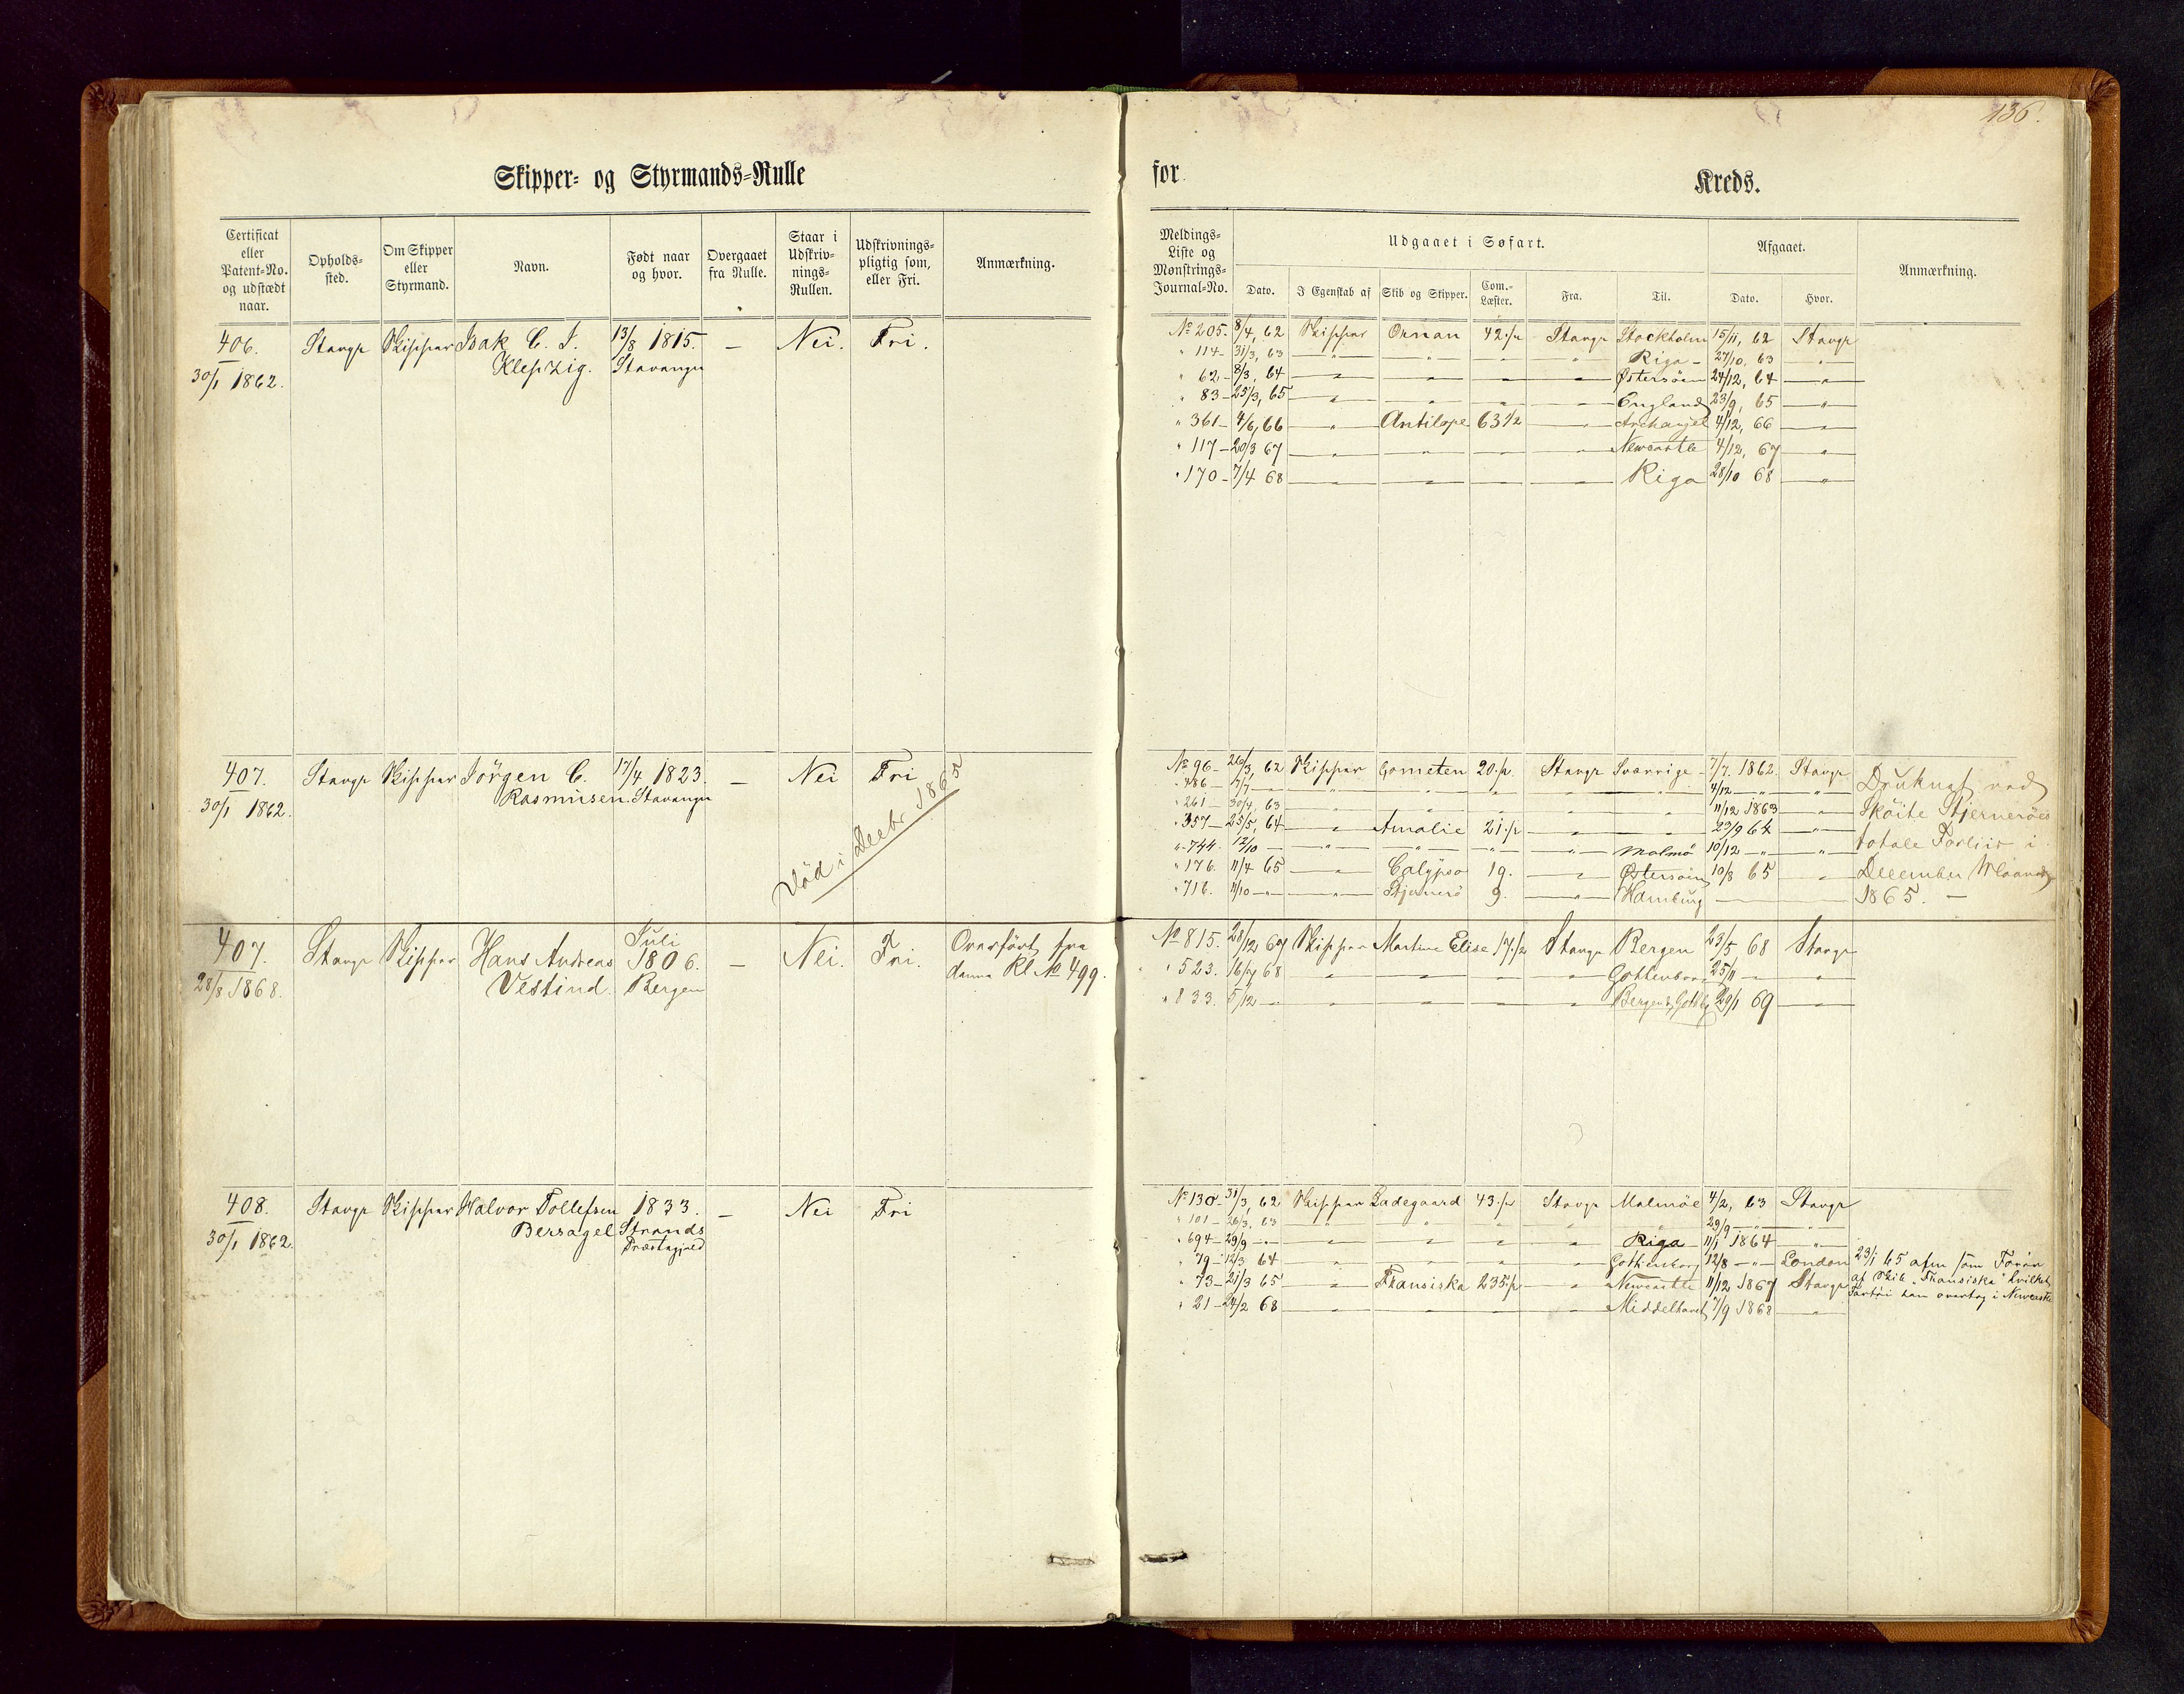 136.
Skipper- og Styrmands-Rulle
for
Kreds.
Certificat eller Patent-No. og udstædt naar.
Opholds-sted.
Om Skipper eller Styrmand.
Navn.
Født naar og hvor.
Overgaaet fra Rulle.
Staar i Udskriv-nings-Rullen.
Udskrivnings-pligtig som, eller Fri.
Anmærkning.
Meldings-Liste og Mønstrings-Journal-No.
Udgaaet i Søfart.
Dato.
I Egenskab af
Skib og Skipper.
Com.-Læster.
Fra.
Til.
Afgaaet.
Dato.
Hvor.
Anmærkning.
406. Stavgr Skipper Isak C. I. 13/8 1815. — Nei. Fri.
30/1 1862. Klepzig. Stavanger
No 205. 8/4, 62 Skipper Ornan 42 1/2 Stavgr Stockholm 15/11, 62 Stavgr
" 114 - 31/3, 63 — " — " — " Riga - 27/10, 63 "
" 62 - 8/3, 64 — " — " — " — " — Østersøen 24/12, 64 — " —
" 83 - 25/3, 65 — " — " — " — " — England 23/9, 65 — " —
" 361 - 4/6, 66 — " — Antilope 63 1/2 — " — Archangel 4/12, 66 — " —
" 117 - 20/3 67 — " — " — " — " — Newcastle 4/12, 67 — " —
" 170 - 7/4 68 — " — " — " — " — Riga 28/10 68 — " —
407. Stavgr Skipper Jörgen C. 17/4 1823. — Nei Fri
30/1 1862. Rasmusen. Stavanger
Död i Decbr 1865
No 96 - 26/3, 62 Skipper Cometen 20 1/2 Stavgr Svarrige - 7/7. 1862. Stavgr
" 486 - 7/7 — " — " — " — " — " 4/12 — " — "
" 261 - 30/4, 63 — " — " — " — " — " 11/12 1863 "
" 357 - 25/5, 64 — " — Amalie 21 1/2 — " — " 23/9 64 — " —
" 744. 12/10 — " — " — " — " — Malmö 10/12 — " — "
" 176. 11/4 65 — " — Calypso 19. — " — Østersøen 10/8 65 "
" 716. 11/10 — " — Stjernerö 9. — " — Hamburg —
Druknet ved
Sköite Stjerneröes
totale Forliis i
December Maaned
1865. —
407. Stavgr Skipper Hans Andreas Juli 1806. — Nei. Fri. Overfört fra
28/8 1868. Vestind. Bergen denne Rl No 499.
No 815. 28/12 67 Skipper Martine Elise 17 1/2 Stavgr Bergen 23/5, 68 Stavgr
" 523. 16/7 68 — " — " — " — " — Gottenborg 25/11 — " — "
" 833. 5/12 — " — " — " — " — Bergen & Gotbg 29/1 69 — " —
408. Stavgr Skipper Halvor Tollefsen 1833. — Nei Fri
30/1 1862. Bersagel Strands
Præstegjæld
No 130 31/3, 62 Skipper Ladegaard 43 1/2 Stavgr Malmöe 4/2, 63 Stavgr
" 101 - 26/3. 63 — " — " — " — " — " 29/9 — " — "
" 694 - 29/9 — " — " — " — " — Riga 11/1 1864 — " —
" 79 - 12/3 64 — " — " — " — " — Gottenborg 12/8 — " — London
" 73 - 21/3 65 " Fransiska 235 1/2 " Newcastle 11/12 1867 Stavgr
" 21 - 24/2 68 — " — " — " — " — Middelhavet 7/9 1868 "
23/1 65 afm som Förer
af Skib "Fransiska" hvilket
Fartöi han overtog i Newcastle